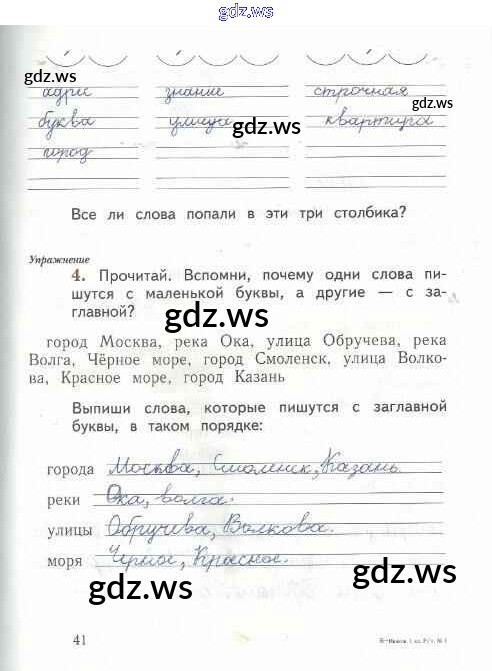 gdz.ws
gdz.ws gdz.ws
адрис знание строчная
буква улица квартира
город
gdz.ws gdz.ws
Все ли слова попали в эти три столбика?
Упражнение
4. Прочитай. Вспомни, почему одни слова пи-
шутся с маленькой буквы, а другие — с за-
главной?
gdz.ws
город Москва, река Ока, улица Обручева, река
Волга, Чёрное море, город Смоленск, улица Волко-
ва, Красное море, город Казань
Выпиши слова, которые пишутся с заглавной
буквы, в таком порядке:
города Москва, Смоленск, Казань
реки Ока, волга.
улицы Обручева, Волкова.
моря Черное, Красное.
gdz.ws gdz.ws
41